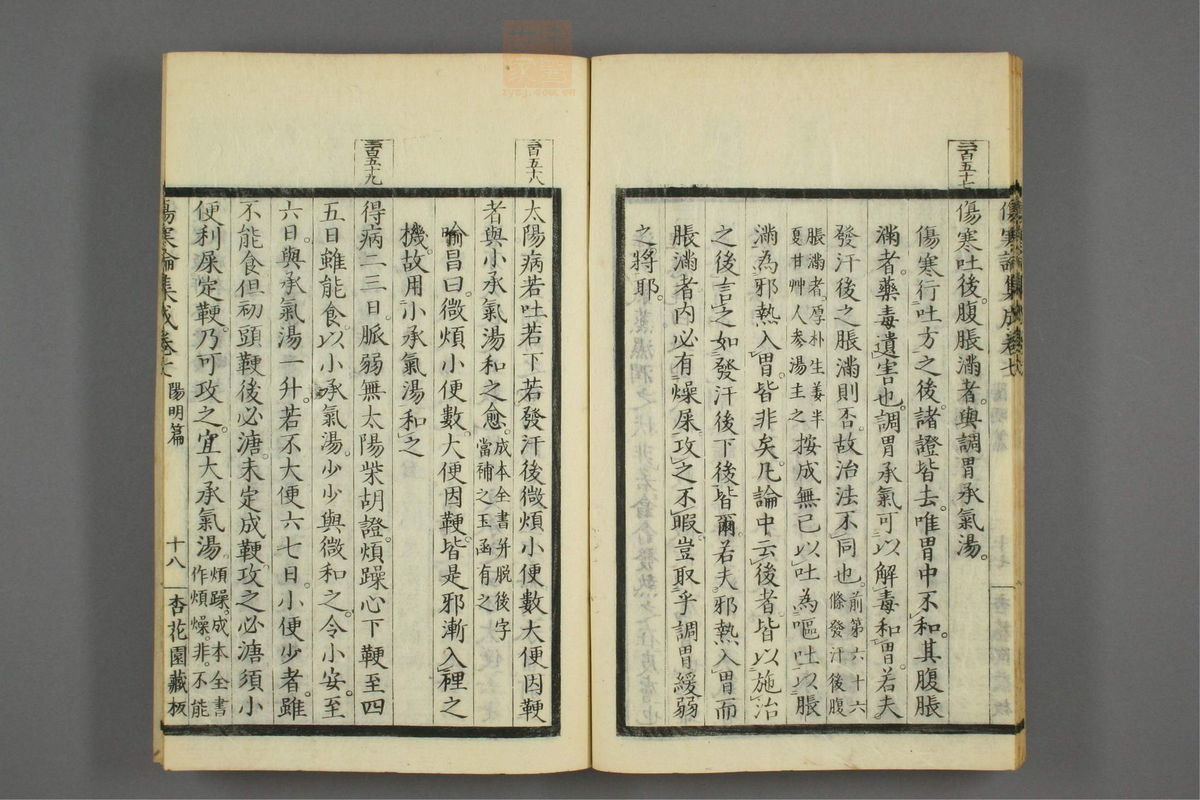 傷寒論集成卷七
二百五十七
傷寒吐後。腹脹滿者。與調胃承氣湯。
傷寒行吐方之後。諸證皆去。唯胃中不和。其腹脹
滿者。藥毒遺害也。調胃承氣可以解毒和胃。若夫
發汗後之脹滿則否。故治法不同也。前第六十六條發汗後腹
脹滿者。厚朴生姜半夏甘艸人參湯主之 按成無已以吐為嘔吐。以脹
滿為邪熱入胃。皆非矣。凡論中云後者。皆以施治
之後言之。如發汗後下後皆爾。若夫邪熱入胃而
脹滿者。内必有燥屎。攻之不暇。豈取乎調胃緩弱
之將耶。
二百五十八
太陽病。若吐若下若發汗後。微煩小便數大便因鞕
者。與小承氣湯和之愈。成本全書併脫後字當補之玉函有之
喻昌曰。微煩小便數。大便因鞕。皆是邪漸入裡之
機。故用小承氣湯和之
二百五十九
得病二三日。脈弱無太陽柴胡證。煩躁心下鞕。至四
五日。雖能食。以小承氣湯。少少與微和之。令小安。至
六日。與承氣湯一升。若不大便六七日。小便少者。雖
不能食。但初頭鞕後必溏。未定成鞕。攻之必溏。須小
便利屎定鞕。乃可攻之。宜大承氣湯。煩躁。成本全書作煩燥。非。不能
傷寒論集成卷七 陽明篇 十八 杏花園藏板